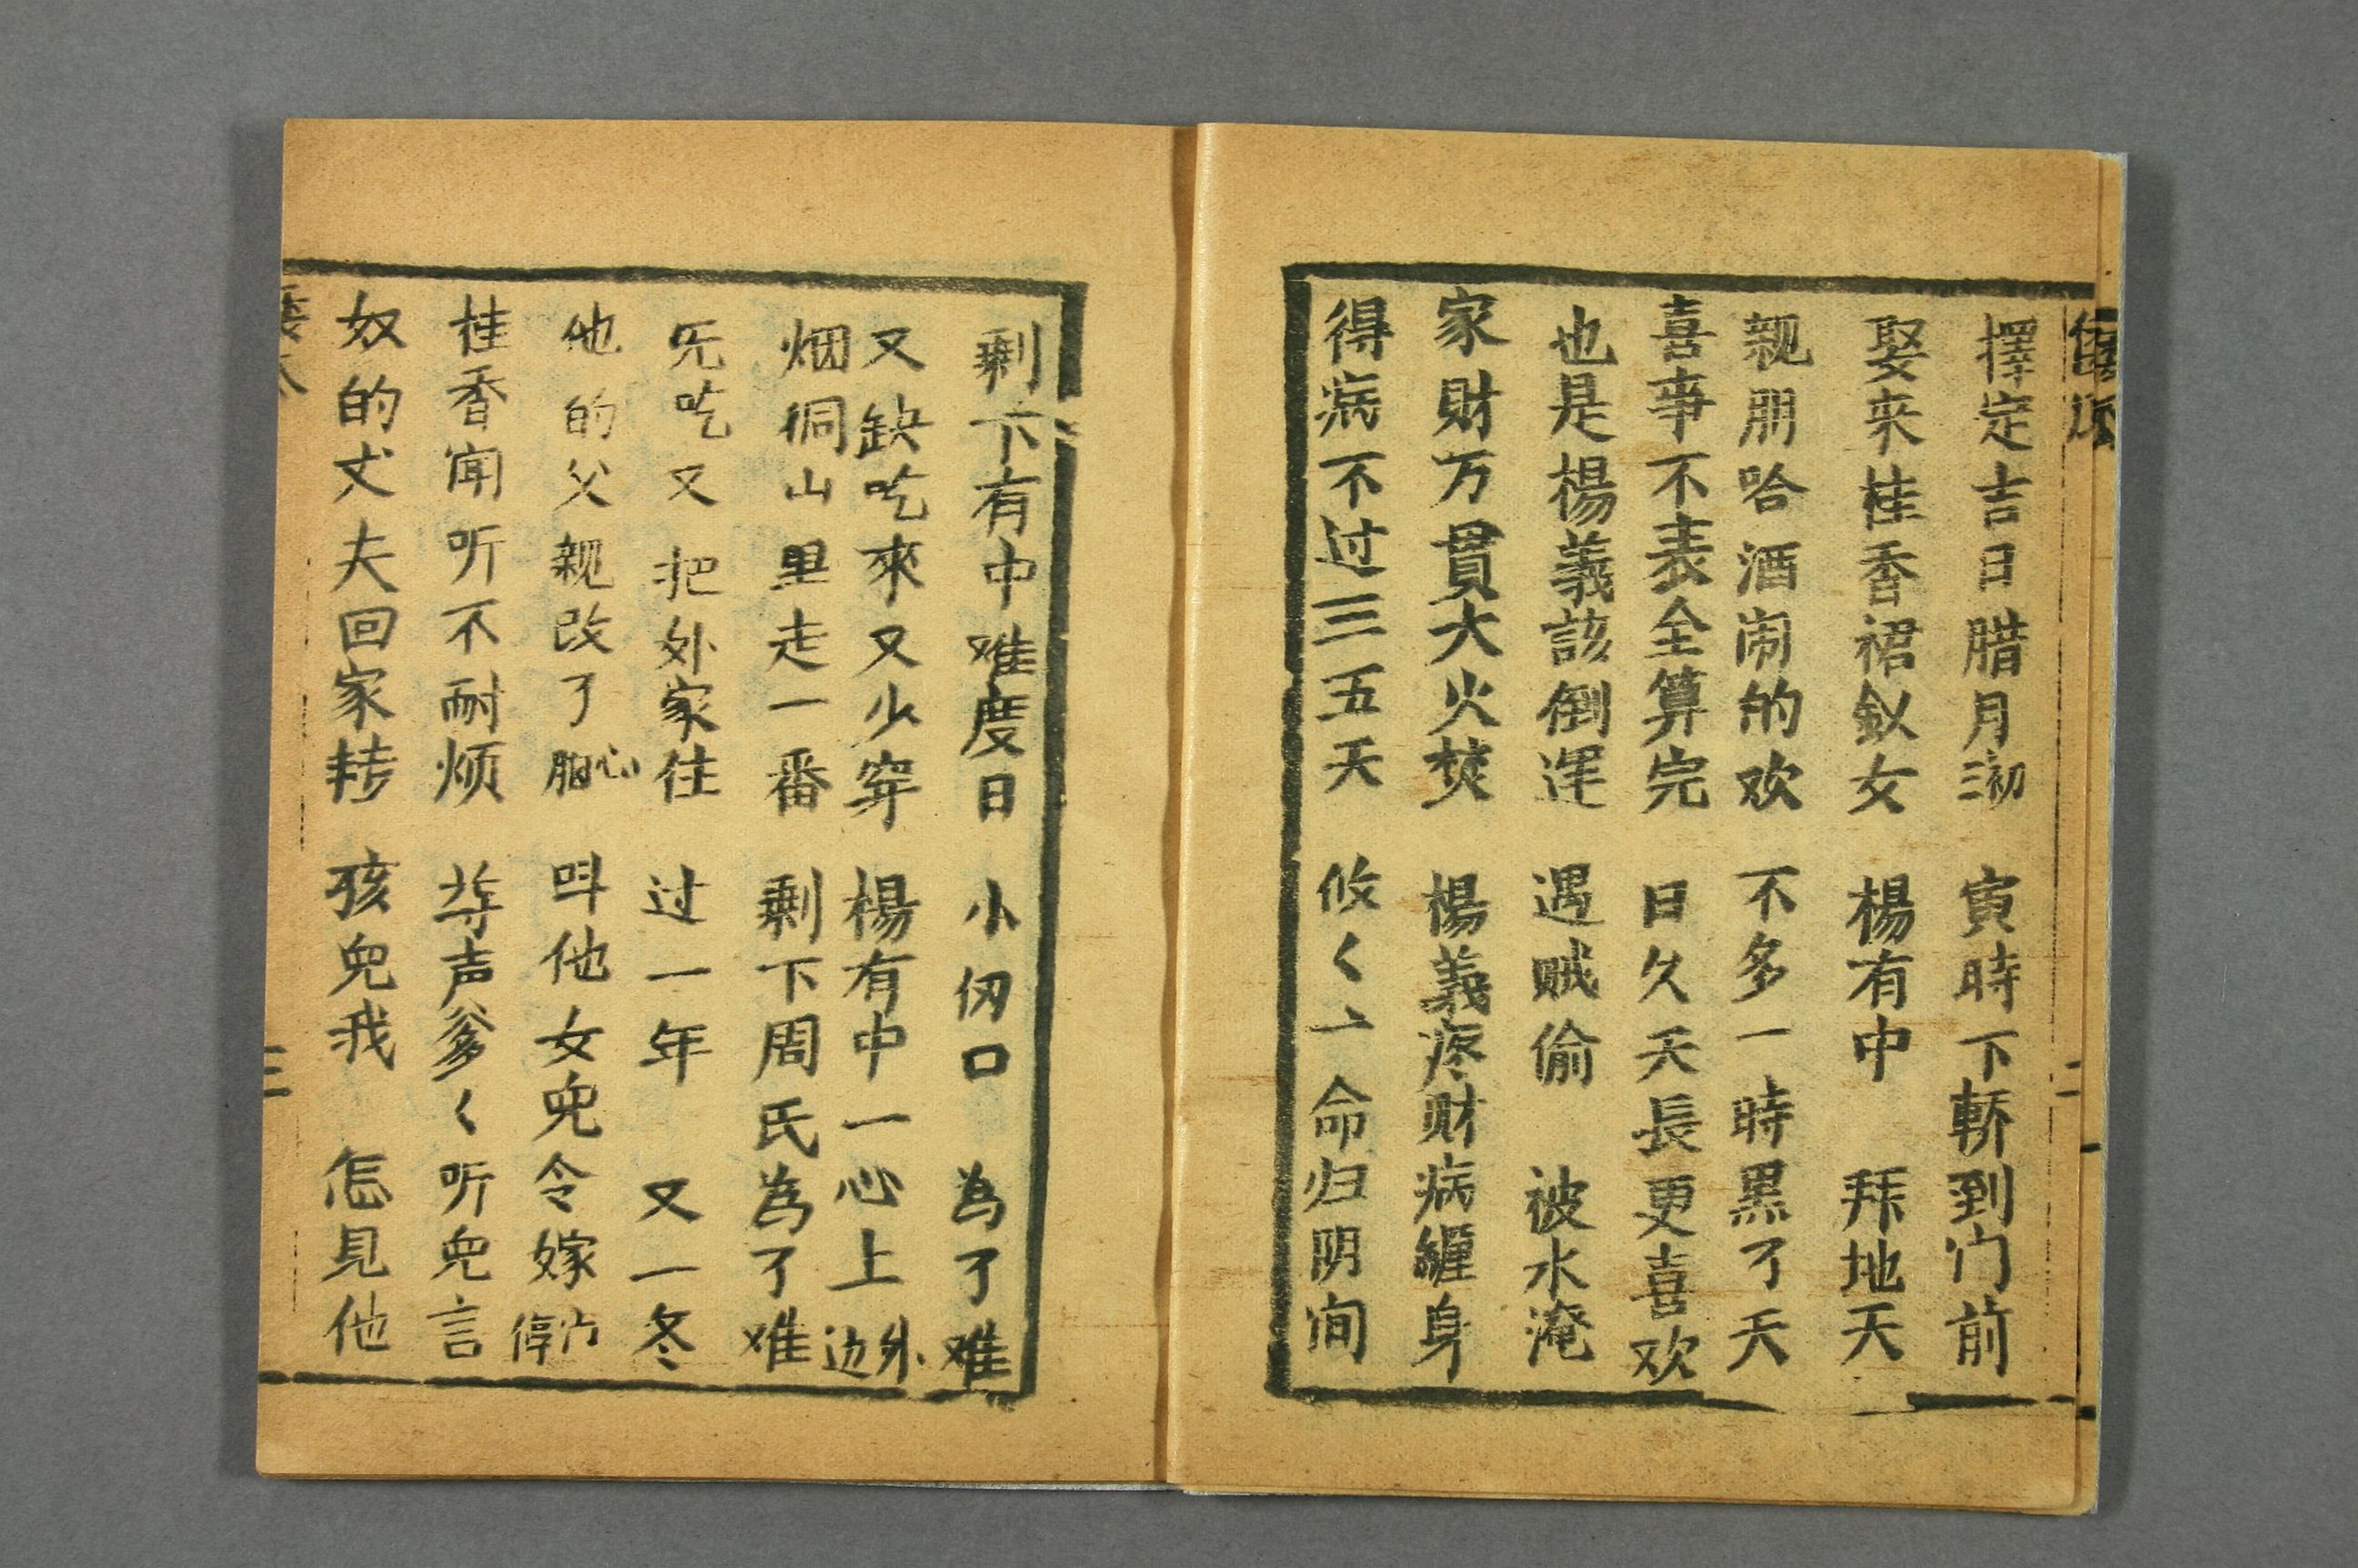 擇定吉日腊月初三 寅時下轎到门前
娶来桂香裙釵女 楊有中 拜地天
親朋哈酒闹的欢 不多一時黒了天
喜事不表全算完 日久天長更喜欢
也是楊義該倒運 遇贼偷 被水淹
家財万貫大火焚 楊義疼财病纏身
得病不过三五天 攸く一命归阴间
剩下有中难度日 小伢口 為了难
又缺吃來又少穿 楊有中一心上外边
烟侗山里走一番 剩下周氏為了难
旡吃又把外家住 过一年 又一冬
他的父親改了心胸 呌他女児令嫁门停
桂香闻听不耐烦 尊声爹く听児言
奴的丈夫回家转 孩児我 怎見他
三